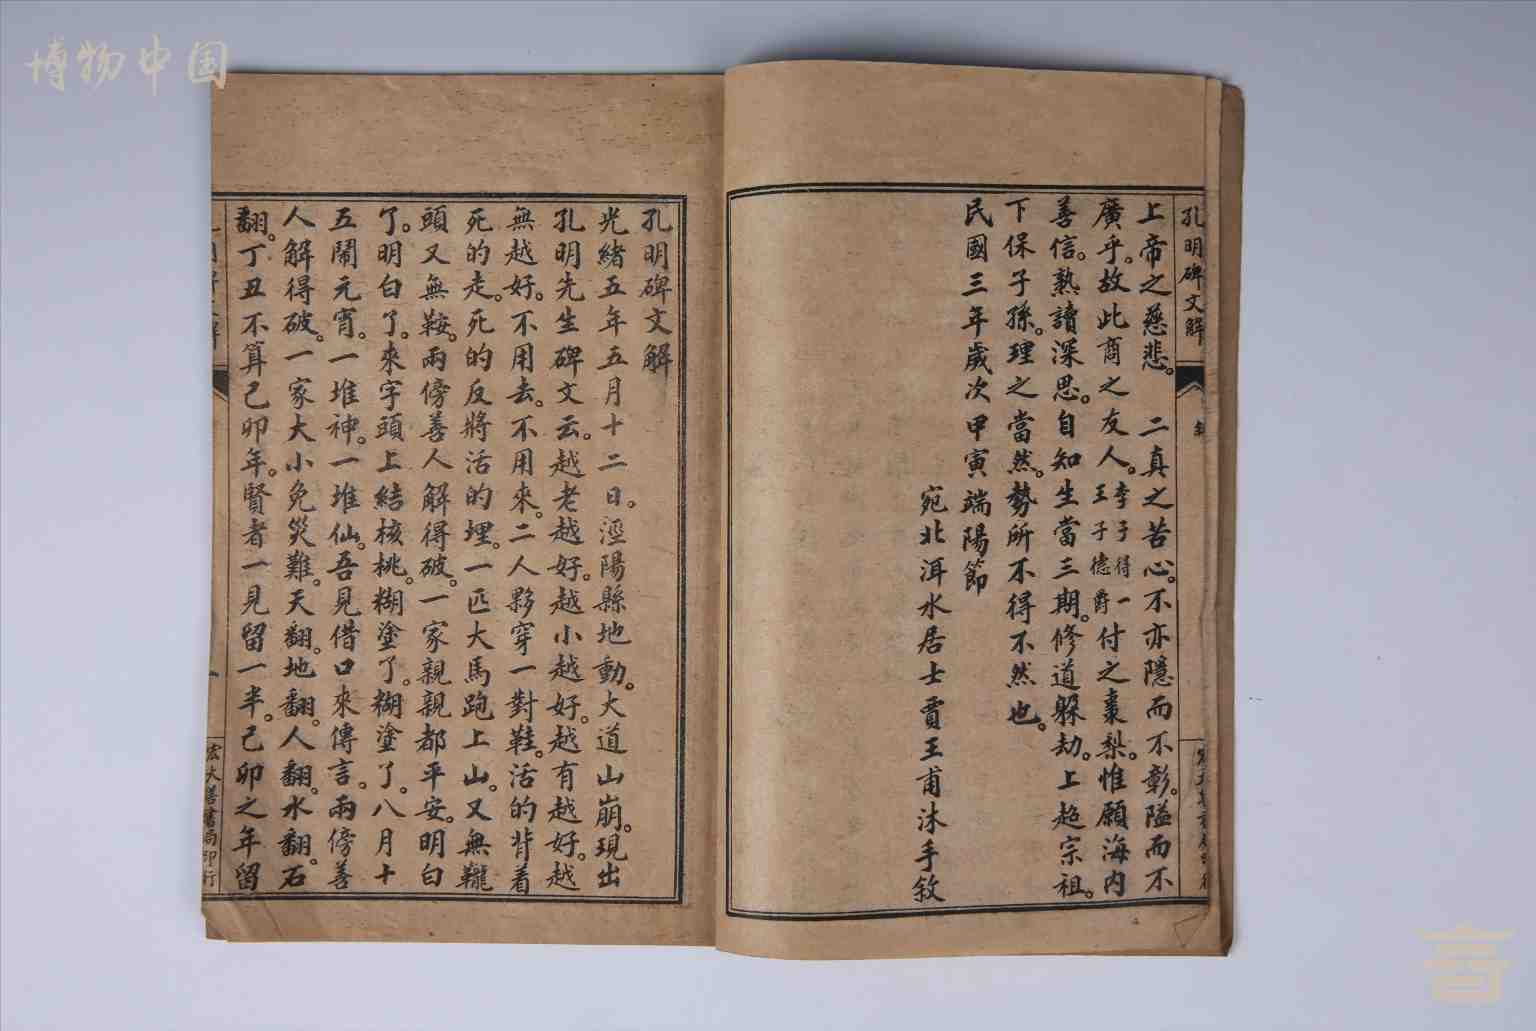 博物中国
孔明碑文解
上帝之慈悲。 二真之苦心。不亦隱而不彰。隘而不
廣乎。故此商之友人。李子得王子德爵一付之棗梨。惟願海內
善信。熟讀深思。自知生當三期。修道躲劫。上超宗祖。
下保子孫。理之當然。勢所不得不然也。
民國三年歲次甲寅端陽節
宛北洱水居士賈王甫沐手敘
孔明碑文解
光緒五年五月十二日。涇陽縣地動。大道山崩。現出
孔明先生碑文云。越老越好。越小越好。越有越好。越
無越好。不用去。不用來。二人夥穿一對鞋。活的背着
死的走。死的反將活的埋。一匹大馬跑上山。又無韁
頭又無鞍。兩傍善人解得破。一家親親都平安。明白
了。明白了。來字頭上結核桃。糊塗了。糊塗了。八月十
五鬧元宵。一堆神。一堆仙。吾見借口來傳言。兩傍善
人解得破。一家大小免災難。天翻。地翻。人翻。水翻。石
翻。丁丑不算己卯年。賢者一見留一半。己卯之年留
宏大善書局印行